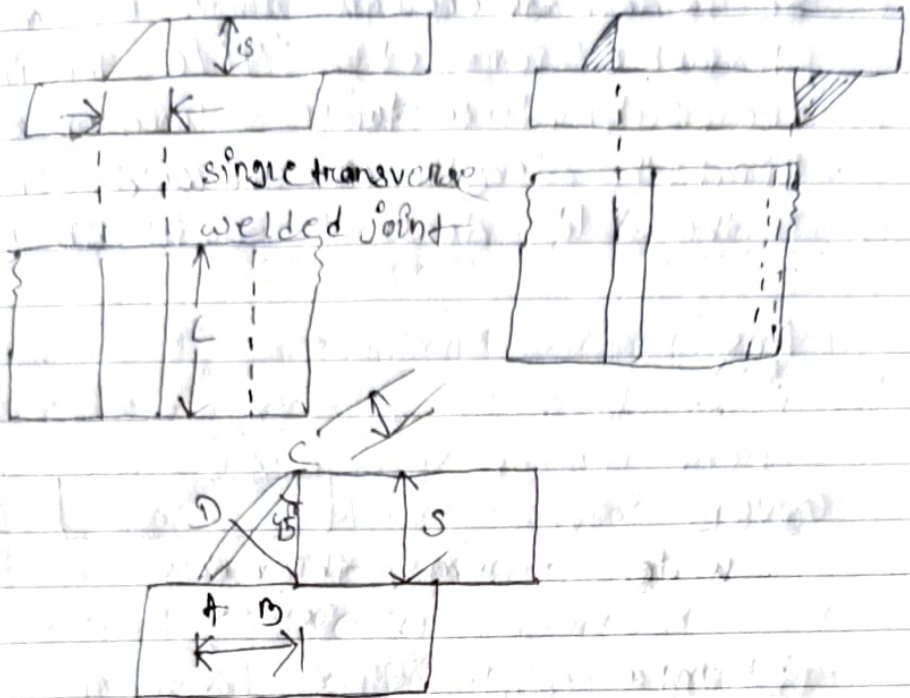 S
single transverse
welded joint
L
C
D
45°
S
A B